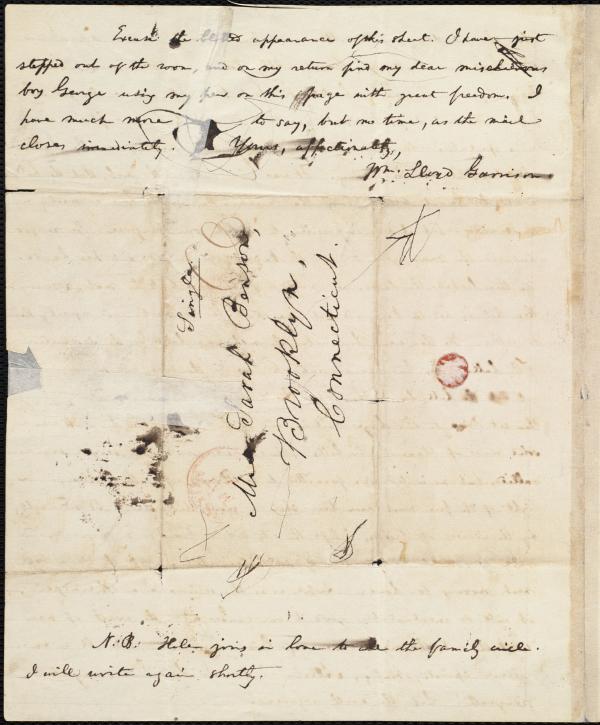 Excuse the appearance of this sheet. I have just
stepped out of the room, and on my return find my dear mischievous
boy George using my pen on this page with great freedom. I
have much more to say, but no time, as the mail
closes immediately. Yours, affectionately,
Wm. Lloyd Garrison
Single
Mrs. Sarah Benson,
Brooklyn,
Connecticut.
N.B. Helen joins in love to all the family circle.
I will write again shortly.